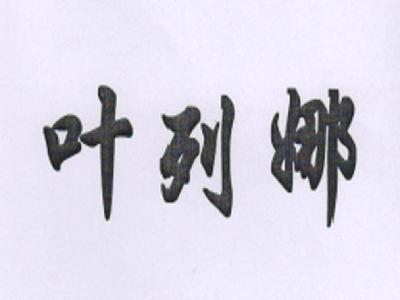 叶列娜